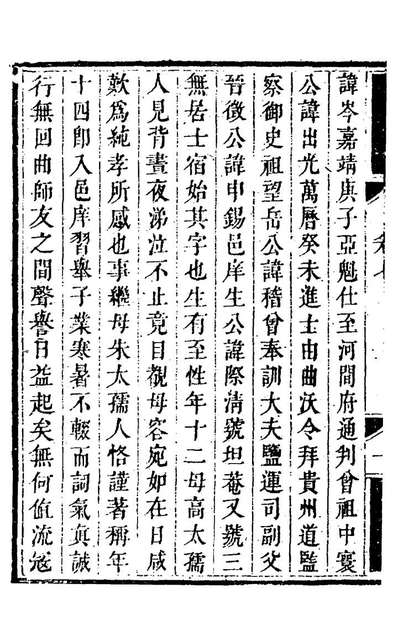 諱岑嘉靖庚子亞魁仕至河間府通判曾祖中寰
公諱出光萬曆癸未進士由曲沃令拜貴州道監
察御史祖望岳公諱稽曾奉訓大夫鹽運司副父
晉徵公諱申錫邑庠生公諱際清號坦菴又號三
無居士宿始其字也生有至性年十二母高太孺
人見背晝夜涕泣不止竟目覩母容宛如在日咸
歎爲純孝所感也事繼母朱太孺人恪謹著稱年
十四卽入邑庠習舉子業寒暑不輟而詞氣眞誠
行無回曲師友之間聲譽日益起矣無何值流寇